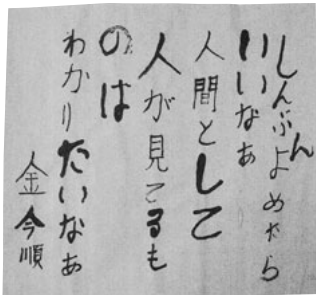 しんぶんよめたら
いいなぁ
人間として
人が見てるも
のは
わかりたいなぁ
金今順